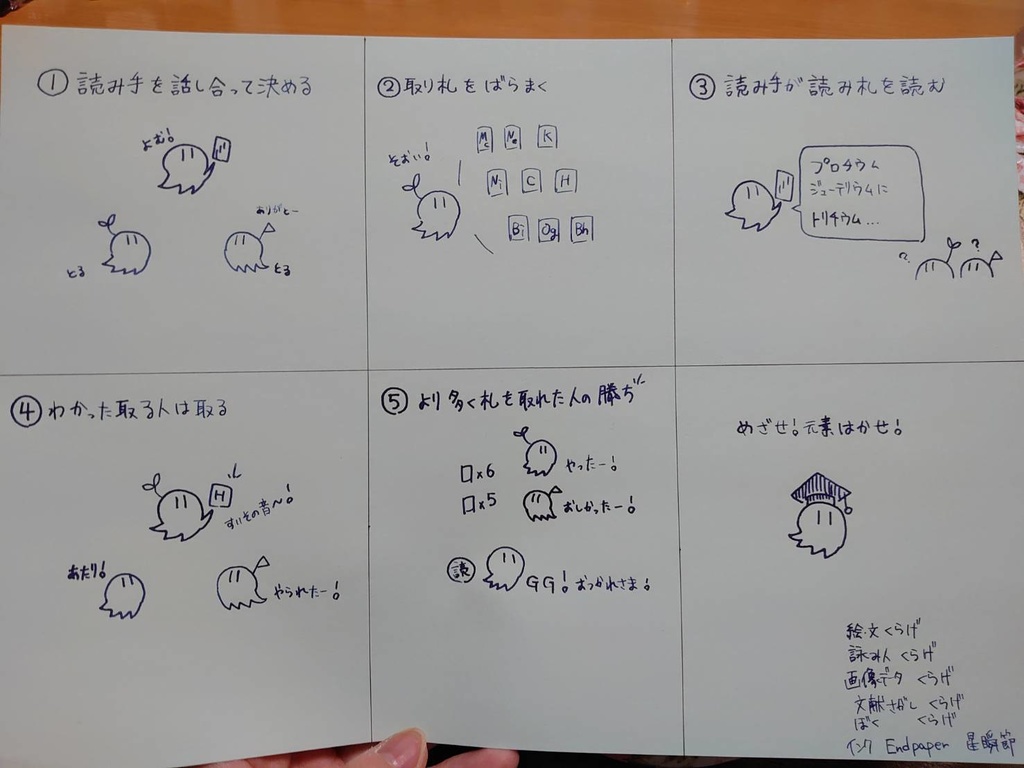 ① 読み手を話し合って決める
よむ!
ありがとー
とる
とる
② 取り札をばらまく
そおい!
Mc Ne K
Ni C H
Bi Og Bh
③ 読み手が読み札を読む
プロチウム
ジューテリウムに
トリチウム...
?
?
④ わかった取る人は取る
H
すいその音〜!
あたり!
やられたー!
⑤ より多く札を取れた人の勝ぢ
□×6 やったー!
□×5 おしかったー!
読 GG! おつかれさま!
めざせ!元素はかせ!
絵・文 くらげ
詠み人 くらげ
画像データ くらげ
文献さがし くらげ
ぼく くらげ
インク Endpaper 星瞬節